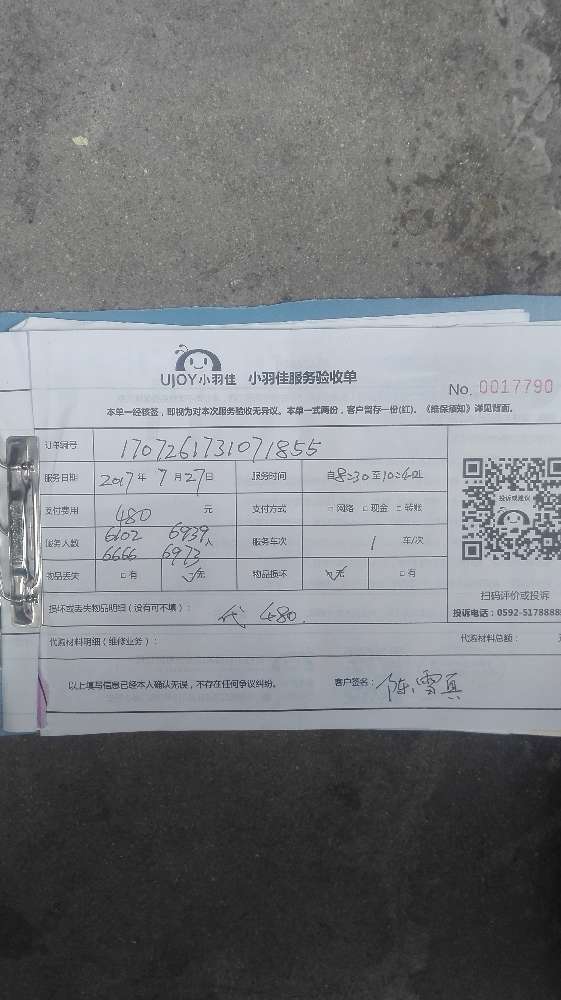 UJOY小羽佳 小羽佳服务验收单
No. 0017790
本单一经核签，即视为对本次服务验收无异议。本单一式两份，客户留存一份(红)。《维保须知》详见背面。
订单编号 1707261731071855
服务日期 2017年7月27日 服务时间 自8:30至10:40止
支付费用 480 元 支付方式 □网络 □现金 □转账
服务人数 6102 6939 人 服务车次 1 车/次
6666 6973
物品丢失 □有 ☑无 物品损坏 ☑无 □有
投诉或建议
扫码评价或投诉
损坏或丢失物品明细（没有可不填）： 代 480.
投诉电话：0592-5178888
代购材料明细（维修业务）： 代购材料总额：
以上填写信息已经本人确认无误，不存在任何争议纠纷。 客户签名：陈雪真